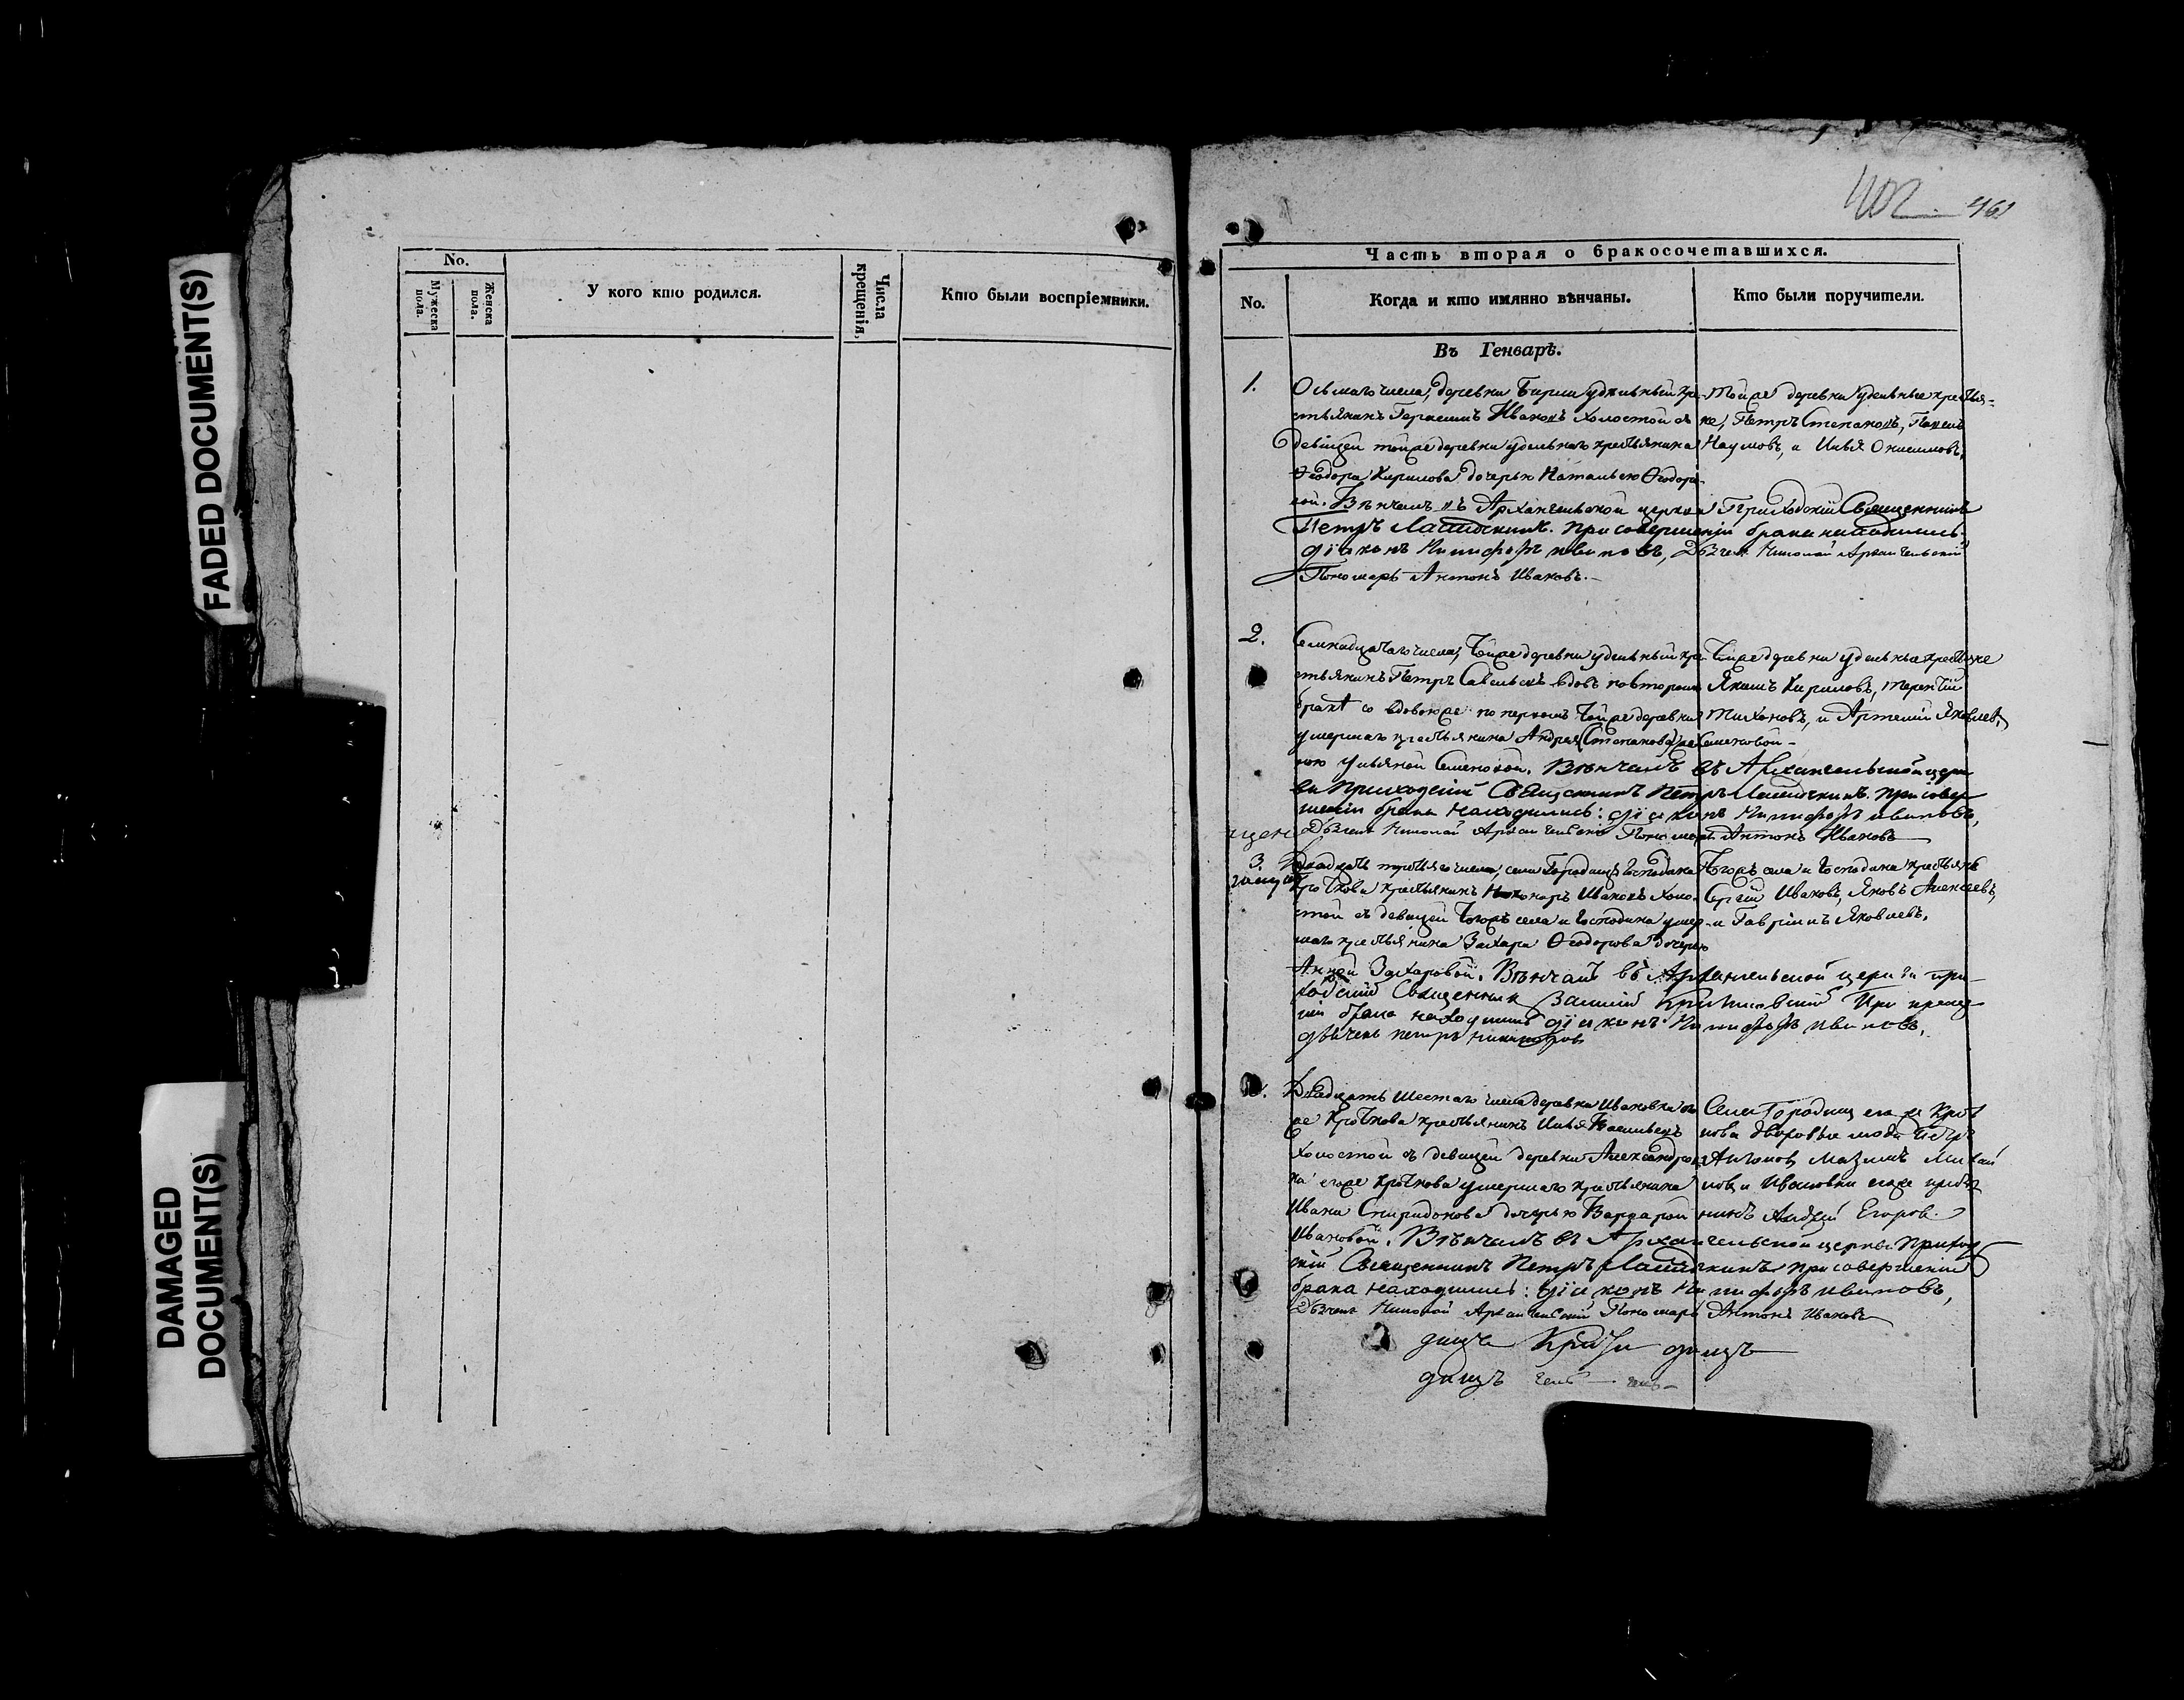 FADED DOCUMENT(S)
DAMAGED
DOCUMENT(S)
No.
Мужеска
пола.
Женска
пола.
У кого кто родился.
Числа
крещенія,
Кто были воспріемники.
402 461
Часть вторая о бракосочетавшихся.
No.
Когда и кто имянно вѣнчаны.
Кто были поручители.
Въ Генварѣ.
1.
Осьмаго числа, деревни удѣльный кре-
стьянинъ Герасимъ Ивановъ холостой съ
девицей тойже деревни удѣльнаго крестьянина
Ѳеодора Кирилова дочерью Натальею Ѳеодоро-
вой. Вѣнчалъ въ Архангельской церкви Приходскій Священникъ
Петръ При совершеніи брака находились
діаконъ Никифоръ Ивановъ, Дьячекъ Николай Архангельскій
Пономарь Антонъ Ивановъ.
Тойже деревни удѣльные крестья-
не, Петръ Степановъ,
Наумовъ, и Илья Онисимовъ.
2.
числа, тойже деревни удѣльный кре-
стьянинъ Петръ Савельевъ вдовъ повторому
браку со вдовою же по первомъ тойже деревни
умершаго крестьянина Андрея Степанова
Ульяной Семеновой. Вѣнчалъ въ Архангельской церк
ви Приходскій Священникъ Петръ При совер
шеніи брака находились: діаконъ Никифоръ Ивановъ,
Дьячекъ Николай Архангельскій Пономарь Антонъ Ивановъ
Тойже деревни удѣльные крестьяне
Якимъ Кириловъ, Терентій
Тихоновъ, и Артемій Яковлевъ,
3.
Двадцать третьяго числа, села Городищ Господина
Кроткова крестьянинъ Ивановъ холо-
стой съ девицей тогожъ села и Господина умер-
шаго крестьянина Захара Ѳеодорова дочерью
Анной Захаровой. Вѣнчалъ въ Архангельской церкви при-
ходскій Священникъ Василій При
брака находились діаконъ Никифоръ Ивановъ,
дьячекъ петръ
Тогожъ села и Господина крестьяне
Сергѣй Ивановъ, Яковъ Алексеевъ,
и Гавріилъ Яковлевъ.
Двадцать шестаго числа деревни Ивановки его
же Кроткова крестьянинъ Илья Васильевъ
холостой съ девицей деревни Александров
ки егоже Кроткова умершаго крестьянина
Ивана Спиридонова дочерью Варварой
Ивановой. Вѣнчалъ въ Архангельской церкви Приход
скій Священникъ Петръ при совершеніи
брака находились: діаконъ Никифоръ Ивановъ,
Дьячекъ Николай Архангельскій Пономарь Антонъ Ивановъ
Села Городищ его же Крот
кова дворовые люди Петръ
Антонов Михай
лов и Ивановки егоже
Андрей Егоров.